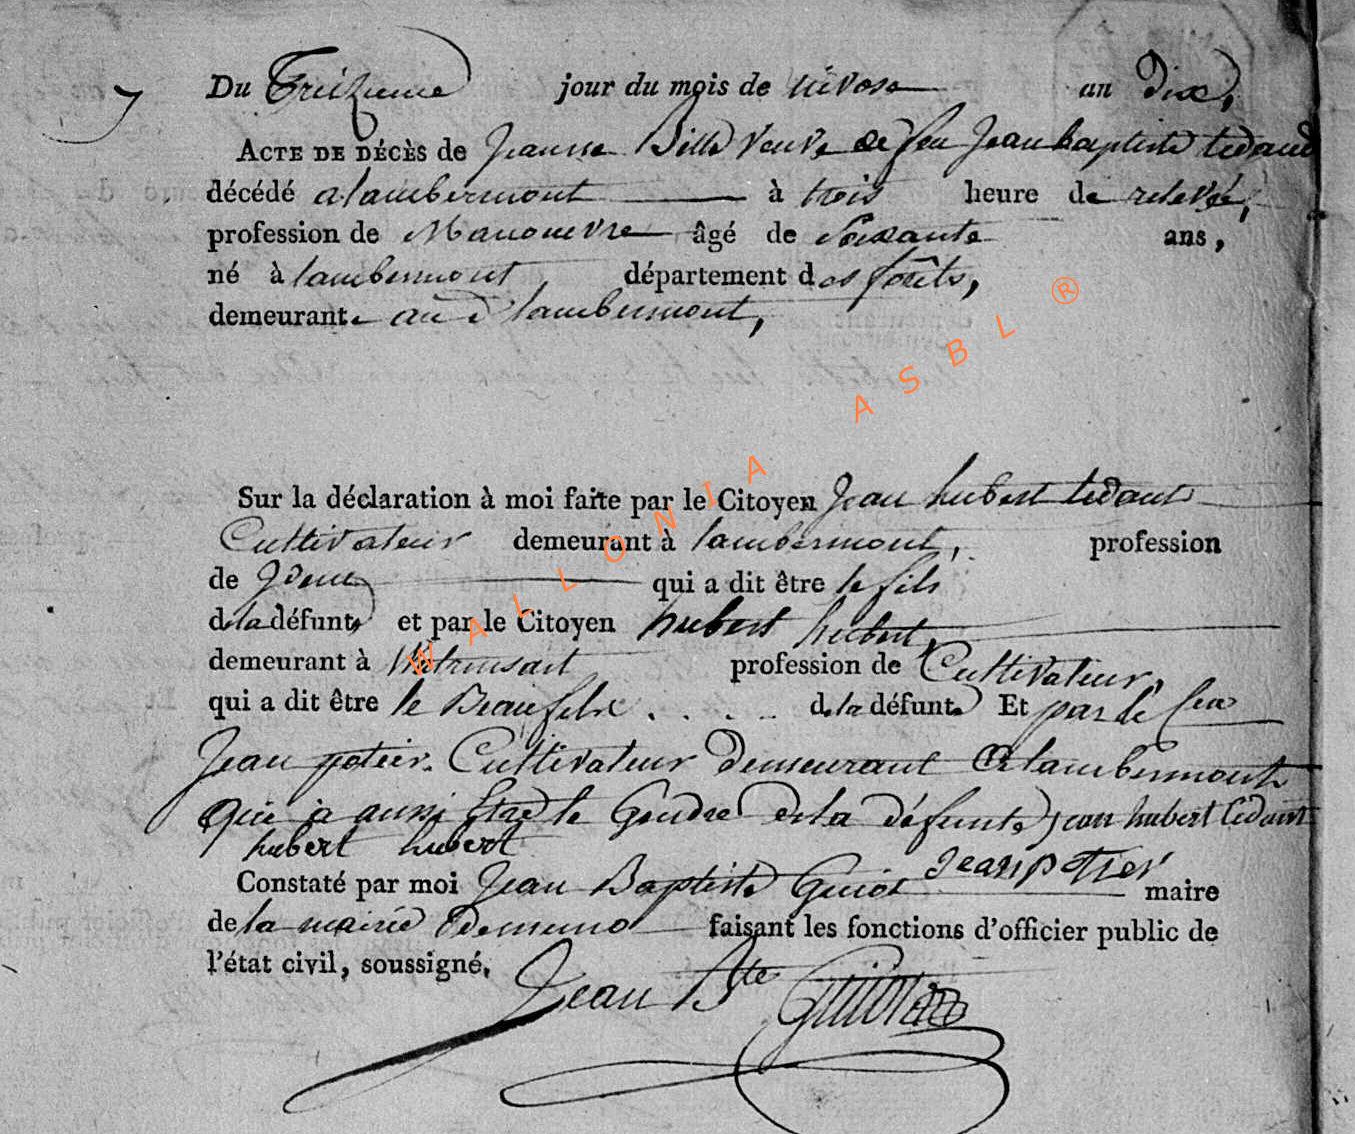 7 Du Treizieme jour du mois de nivose an Dix,
ACTE DE DÉCÈS de Jeanne Bille veuve de feu Jean baptiste ledant
décédé a lambermont à trois heure de relevée,
profession de Manouvre âgé de Soixante ans,
né à lambermont département des forêts,
demeurante au d lambermont,
Sur la déclaration à moi faite par le Citoyen Jean hubert ledant
Cultivateur demeurant à lambermont, profession
de Idem qui a dit être le fils
de la défunte et par le Citoyen hubert hubert,
demeurant à profession de Cultivateur,
qui a dit être le Beaufils . . . . de la défunte Et par le Cen
Jean potier Cultivateur demeurant a lambermont
qui a aussi Etre le Gendre de la défunte jean hubert ledant
hubert hubert
jean potier
Constaté par moi Jean Baptiste Guiot maire
de la mairie de muno faisant les fonctions d'officier public de
l'état civil, soussigné,
Jean Bte Guiot
WALLONIA ASBL ®